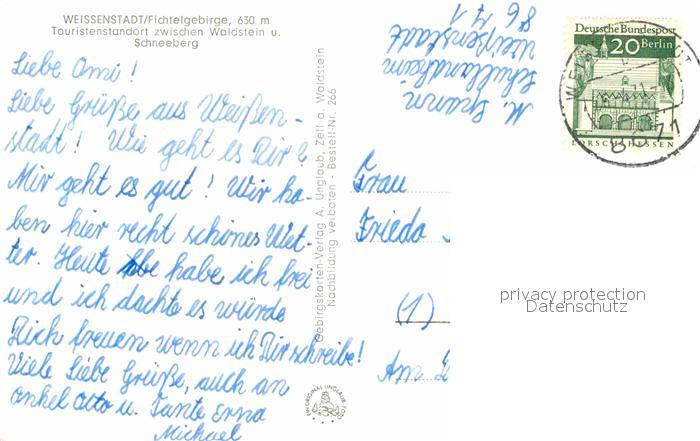 WEISSENSTADT/Fichtelgebirge, 630 m
Touristenstandort zwischen Waldstein u.
Schneeberg
Liebe Omi!
Liebe Grüße aus Weißen-
stadt! Wie geht es Dir?
Mir geht es gut! Wir ha-
ben hier recht schönes Wet-
ter. Heute habe ich frei
und ich dachte es würde
Dich freuen wenn ich Dir schreibe!
Viele Liebe Grüße, auch an
Onkel Otto u. Tante Erna
Michael
Gebirgskarten-Verlag A. Unglaub, Zell a. Waldstein
Nachbildung verboten - Bestell-Nr. 266
EIN ORIGINAL UNGLAUB FOTO
M.
Schullandheim
Weißenstadt
8671
Deutsche Bundespost
20 Berlin
LORSCH/HESSEN
71
8671
Frau
Frieda
(1)
Am
privacy protection
Datenschutz